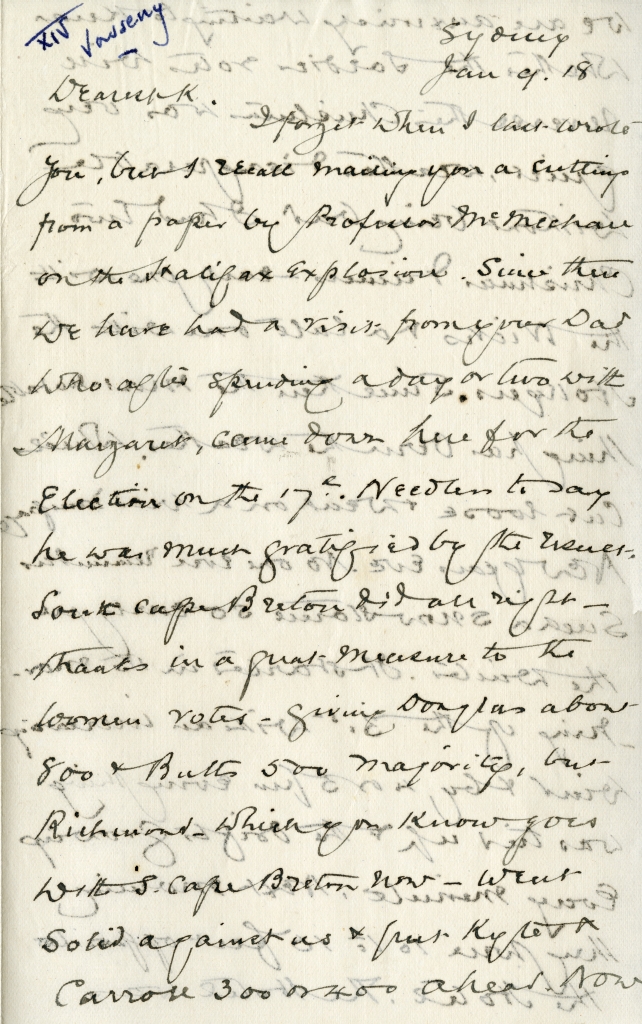 XIV
Vasseny
Sydney
Jan 9. 18
Dearest K.
I forget when I last wrote
you, but I recall mailing you a cutting
from a paper by Professor McMechan
on the Halifax Explosion. Since then
we have had a visit from your Dad
who after spending a day or two with
Margaret, came down here for the
Election on the 17th. Needless to say
he was much gratified by the result.
South Cape Breton did all right -
thanks in a great measure to the
women votes - giving Douglas about
800 & Butts 500 majority, but
Richmond - which you know goes
with S. Cape Breton now - went
solid against us & put Kyte &
Carroll 300 or 400 ahead. Now